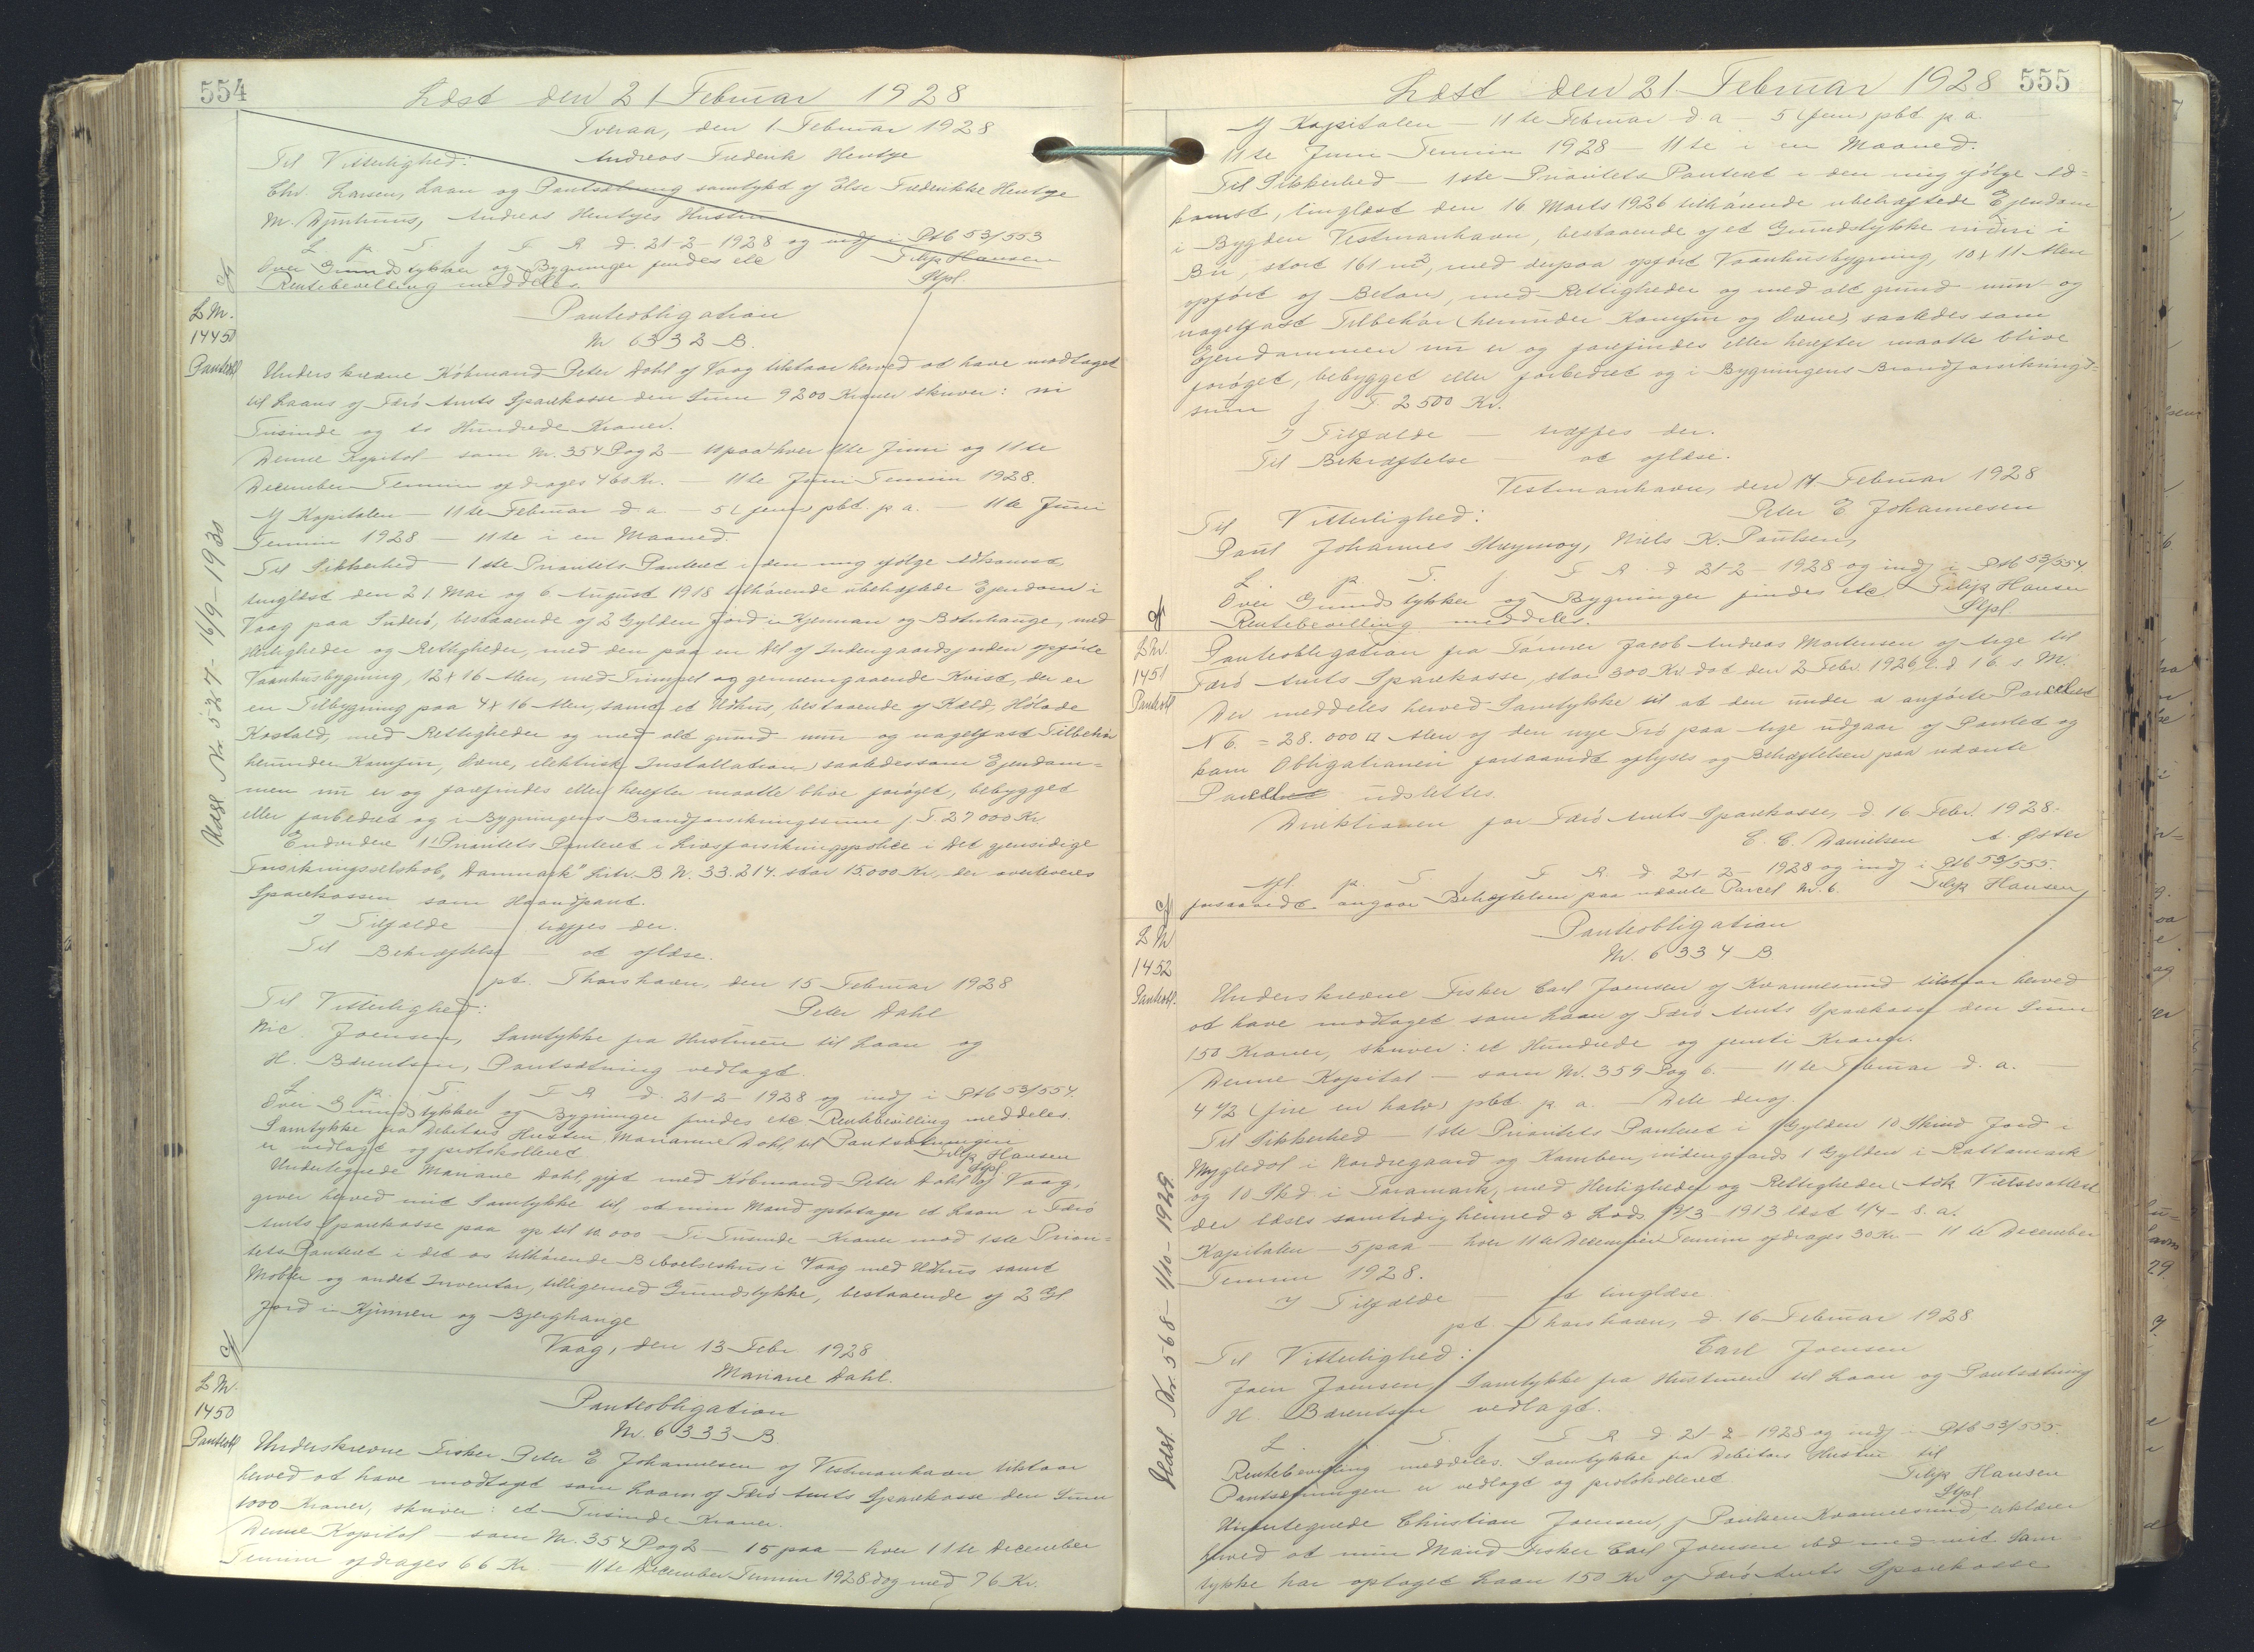 554
Læst den 21 Februar 1928
Tveraa, den 1 Februar 1928
Til Vitterlighed: Andreas Frederik Hentze
Chr. Larsen, Laan og Pantsætning samtykt af Else Frederikke Hentze
M. Djurhuus, Andreas Hentzes Hustru
L. p. T. f. F. R. d. 21-2-1928 og indf i Ptb 53/553
Over Grundstykker og Bygninger findes etc Filip Hansen
Rentebevilling meddeles. Stpl.
L Nr.
1445
Panteobl
Panteobligation
Nr 6332 B.
Underskrevne Købmand Peter Dahl af Vaag tilstaar herved at have modtaget
til Laans af Færø Amts Sparekasse den Sum 9200 Kroner skriver: ni
Tusinde og to Hundrede Kroner.
Denne Kapital - som Nr. 354 Pag 2 - paa hver 11te Juni og 11te
December Termin afdrages 460 Kr. - 11te Juni Termin 1928.
Af Kapitalen - 11te Februar d. a. - 5 (fem) pbt. p. a. - 11te Juni
Termin 1928 - 11te i en Maaned.
Til Sikkerhed - 1ste Prioritets Panteret i den mig ifølge Adkomst,
tinglæst den 21. Mai og 6. August 1918 tilhørende ubehæftede Ejendom i
Vaag paa Suderø, bestaaende af 2 Gylden Jord i Kjerman og Botnhauge, med
Herligheder og Rettigheder, med den paa en Del af Indengaardsjorden opførte
Vaanhusbygning, 12 x 16 Alen, med Trimpel og gennemgaaende Kvist, der er
en Tilbygning paa 4 x 16 Alen, samt et Udhus, bestaaende af Kæld, Hølade
Kostald, med Rettigheder og med alt grund- mur- og nagelfast Tilbehør
herunder Komfur, Ovne, elektrisk Installation) saaledes som Ejendom-
men nu er og forefindes eller herefter maatte blive forøget, bebygget
eller forbedret og i Bygningens Brandforsikringssum f. T. 27000 Kr.
Endvidere 1' Prioritets Panteret i Livsforsikringspolice i Det gensidige
Forsikringsselskab "Danmark" Litr. B Nr. 33.214. stor 15.000 Kr, der overleveres
Sparekassen som Haandpant.
I Tilfælde - træffes der.
Til Bekræftelse - at aflæse.
pt. Thorshavn, den 15 Februar 1928
Til Vitterlighed: Peter Dahl
Nic. Joensen, Samtykke fra Hustruen til Laan og
H. Bærentsen, Pantsætning vedlagt.
L. p. T. f. F R d. 21-2-1928 og indf i Ptb 53/554.
Over Grundstykker og Bygninger findes etc Rentebevilling meddeles.
Samtykke fra Debitors Hustru Marianne Dahl til Pantsætningen
er vedlagt og protokolleret. Filip Hansen
Stpl.
Undertegnede Mariane Dahl, gift med Købmand Peter Dahl af Vaag,
giver herved mit Samtykke til, at min Mand optager et Laan i Færø
Amts Sparekasse paa op til 10.000 - Ti Tusinde - Kroner mod 1ste Priori-
tets Panteret i det os tilhørende Beboelseshus i Vaag med Udhus samt
Møbler og andet Inventar, tilligemed Grundstykke, bestaaende af 2 Gl
Jord i Kjinmen og Bjerghauge
Vaag, den 13 Febr 1928
Mariane Dahl.
Udsl Nr. 527 - 16/9 - 1930
L Nr.
1450
Panteobl
Panteobligation
Nr. 6333 B
Underskrevne Fisker Peter E Johannesen af Vestmanhavn tilstaar
herved at have modtaget som Laan af Færø Amts Sparekasse den Sum
1000 Kroner, skriver: et Tusinde Kroner.
Denne Kapital - som Nr. 354 Pag 2 - 15 paa - hver 11te December
Termin afdrages 66 Kr - 11te December Termin 1928 dog med 76 Kr.
Læst den 21 Februar 1928 555
Af Kapitalen - 11te Februar d a - 5 (fem) pbt p a.
11te Juni Termin 1928 - 11te i en Maaned.
Til Sikkerhed - 1ste Prioritets Panteret i den mig ifølge Ad-
komst, tinglæst den 16 Marts 1926 tilhørende ubehæftede Ejendom
i Bygden Vestmanhavn, bestaaende af et Grundstykke i
Bu, stort 161 m², med derpaa opført Vaanhusbygning, 10 x 11 Alen
opført af Beton, med Rettigheder og med alt grund- mur- og
nagelfast Tilbehør (herunder Komfur og Ovne) saaledes som
Ejendommen nu er og forefindes eller herefter maatte blive
forøget, bebygget eller forbedret og i Bygningens Brandforsikrings-
sum f. T. 2500 Kr.
I Tilfælde - træffes der.
Til Bekræftelse - at aflæse.
Vestmanhavn, den 14 Februar 1928
Til Vitterlighed: Peter E Johannesen
Paul Johannes Streymoy, Niels K. Paulsen,
L. p. T. f. F. R. d 21-2-1928 og indf i Ptb 53/554.
Over Grundstykker og Bygninger findes etc Filip Hansen
Rentebevilling meddeles. Stpl.
L Nr.
1451
Panteobl
Panteobligation fra Tømrer Jacob Andreas Mortensen af Tvge til
Færø Amts Sparekasse, stor 300 Kr dat den 2 Febr. 1926, l. d 16. s. M.
Der meddeles herved Samtykke til at den under a anførte Parcel
N 6. = 28.000 □ Alen af den nye Trø paa udgaar af Pantet og
kan Obligationen forsaavidt aflyses og Behæftelsen paa nævnte
Parcel udslettes.
Direktionen for Færø Amts Sparekasse, d. 16 Febr. 1928.
C. C. Danielsen A. Øster
Afl. p. T. f. F R. d 21-2-1928 og indf i Ptb 53/555.
forsaavidt angaar Behæftelsen paa nævnte Parcel Nr. 6. Filip Hansen
L Nr
1452
Panteobl.
Panteobligation
Nr. 6334 B
Underskrevne Fisker Carl Joensen af Kvannesund tilstaar herved
at have modtaget som Laan af Færø Amts Sparekasse den Sum
150 Kroner, skriver: et Hundrede og femti Kroner.
Denne Kapital - som Nr. 359 Pag 6. - 11te Februar d. a. -
4 1/2 (fire en halv) pbt. p. a. - Dele deraf.
Til Sikkerhed - 1ste Prioritets Panteret i 1 Gylden 10 Skind Jord i
Mygledal i Nordregaard og Kamben, indengaards 1 Gylden i Rattamark
og 10 Skd. i Toramark, med Herligheder og Rettigheder (Adk. Vielsesattest
der læses samtidig hermed & Lods 19/3-1913 læst 1/4 - s. a.
Kapitalen - 5 paa - hver 11te December Termin afdrages 30 Kr - 11te December
Termin 1928.
I Tilfælde - at tinglæse.
pt. Thorshavn, d. 16 Februar 1928
Til Vitterlighed: Carl Joensen
Joen Joensen, Samtykke fra Hustruen til Laan og Pantsætning
H. Bærentsen vedlagt.
L. p. T. f. F R d 21-2-1928 og indf i Ptb 53/555.
Rentebevilling meddeles. Samtykke fra Debitors Hustru til
Pantsætningen er vedlagt og protokolleret. Filip Hansen
Stpl
Undertegnede Christian Joensen, f Poulsen Kvannesund, erklærer
herved at min Mand Fisker Carl Joensen ibd med mit Sam
tykke har optaget Laan 150 Kr af Færø Amts Sparekasse
Udsl Nr. 568 - 1/10 - 1929.